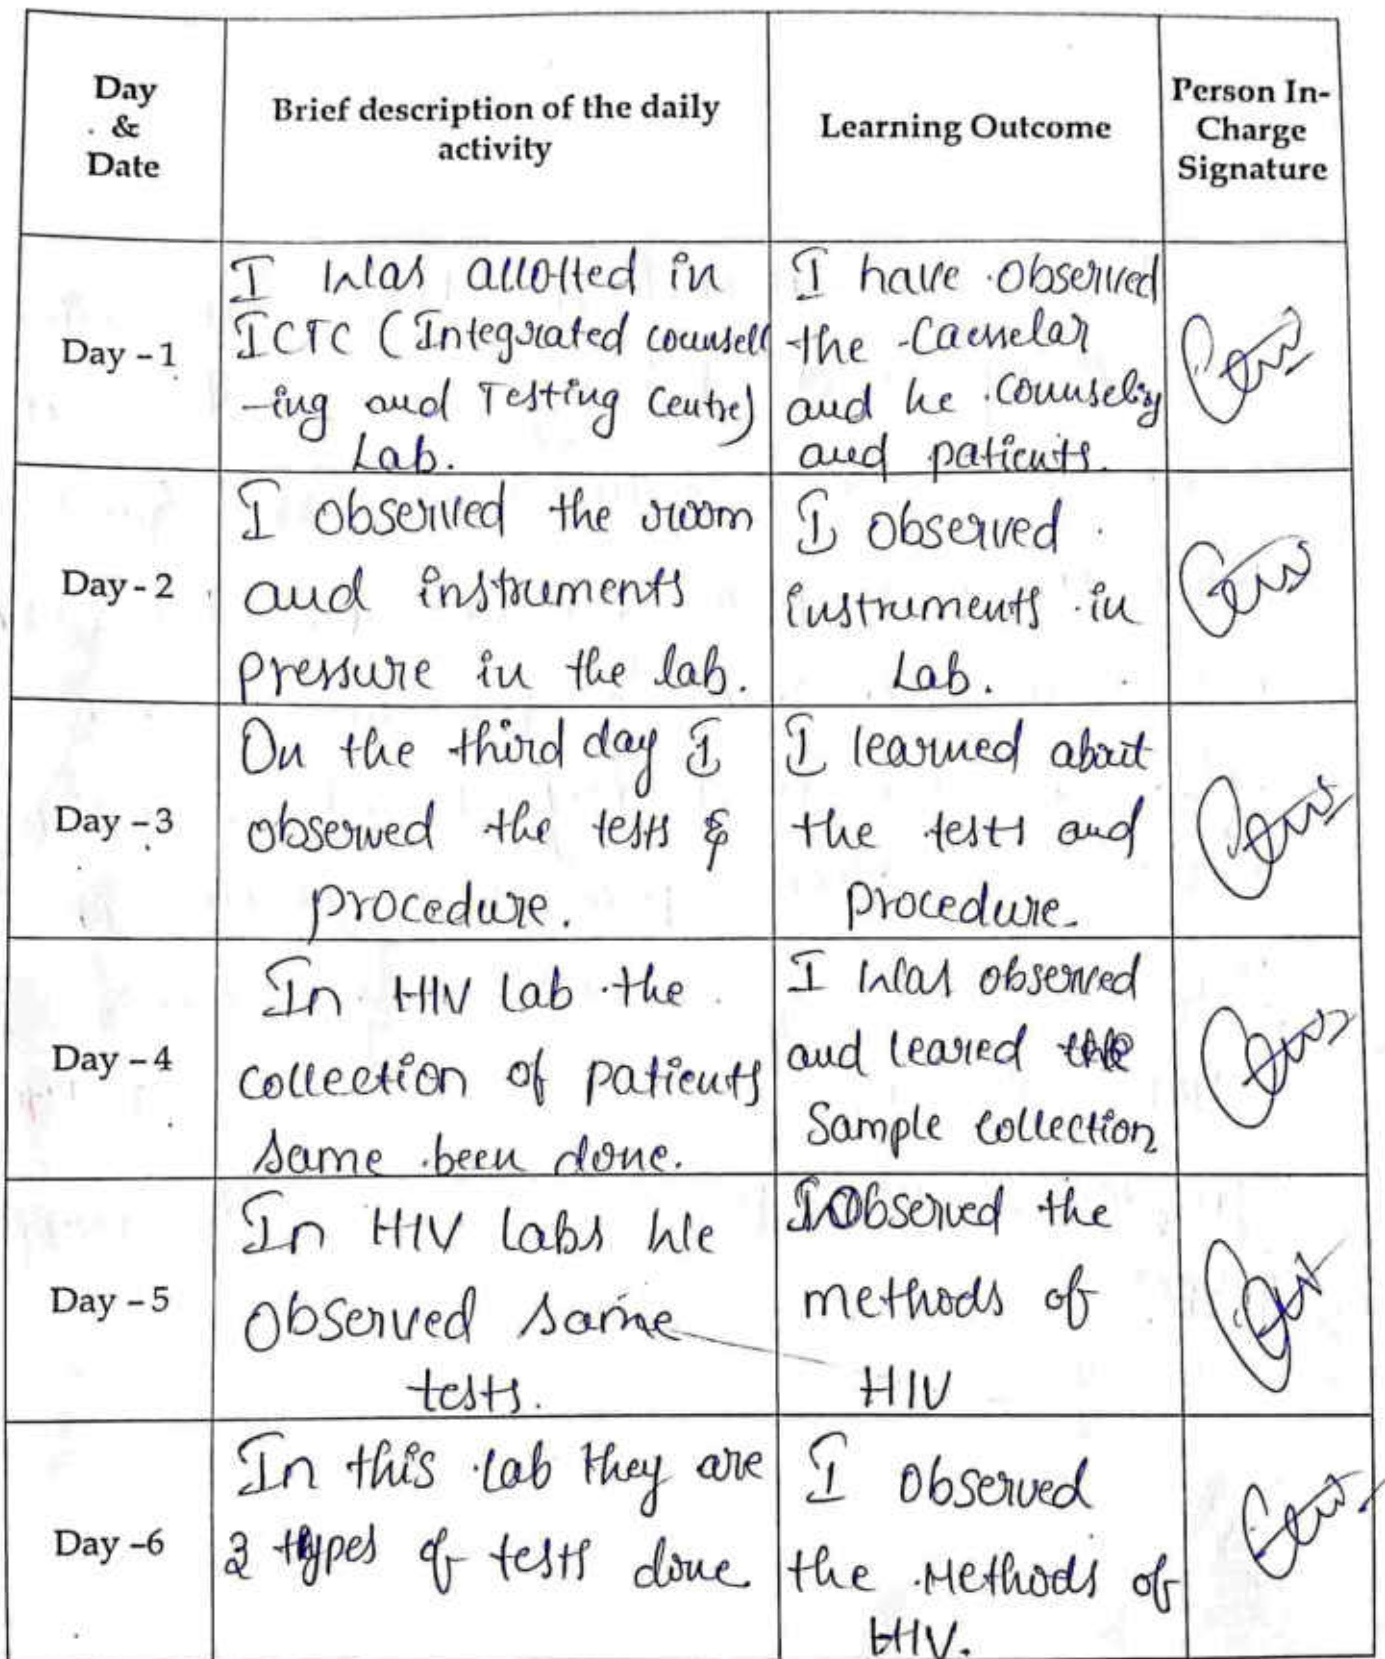 Day
&
Date
Brief description of the daily
activity
Learning Outcome
Person In-
Charge
Signature
Day - 1
I was allotted in
ICTC (Integrated counsell
-ing and Testing Centre)
Lab.
I have observed
the Caenselar
and he Counseling
and patients.
Day - 2
I observed the room
and instruments
pressure in the lab.
I observed
instruments in
Lab.
Day - 3
On the third day I
observed the tests &
procedure.
I learned about
the tests and
Procedure.
Day - 4
In HIV Lab the
collection of patients
same been done.
I was observed
and leared the
Sample collection
Day - 5
In HIV Labs we
Observed same
tests.
I Observed the
methods of
HIV
Day -6
In this lab they are
types of tests done
I observed
the Methods of
HIV.